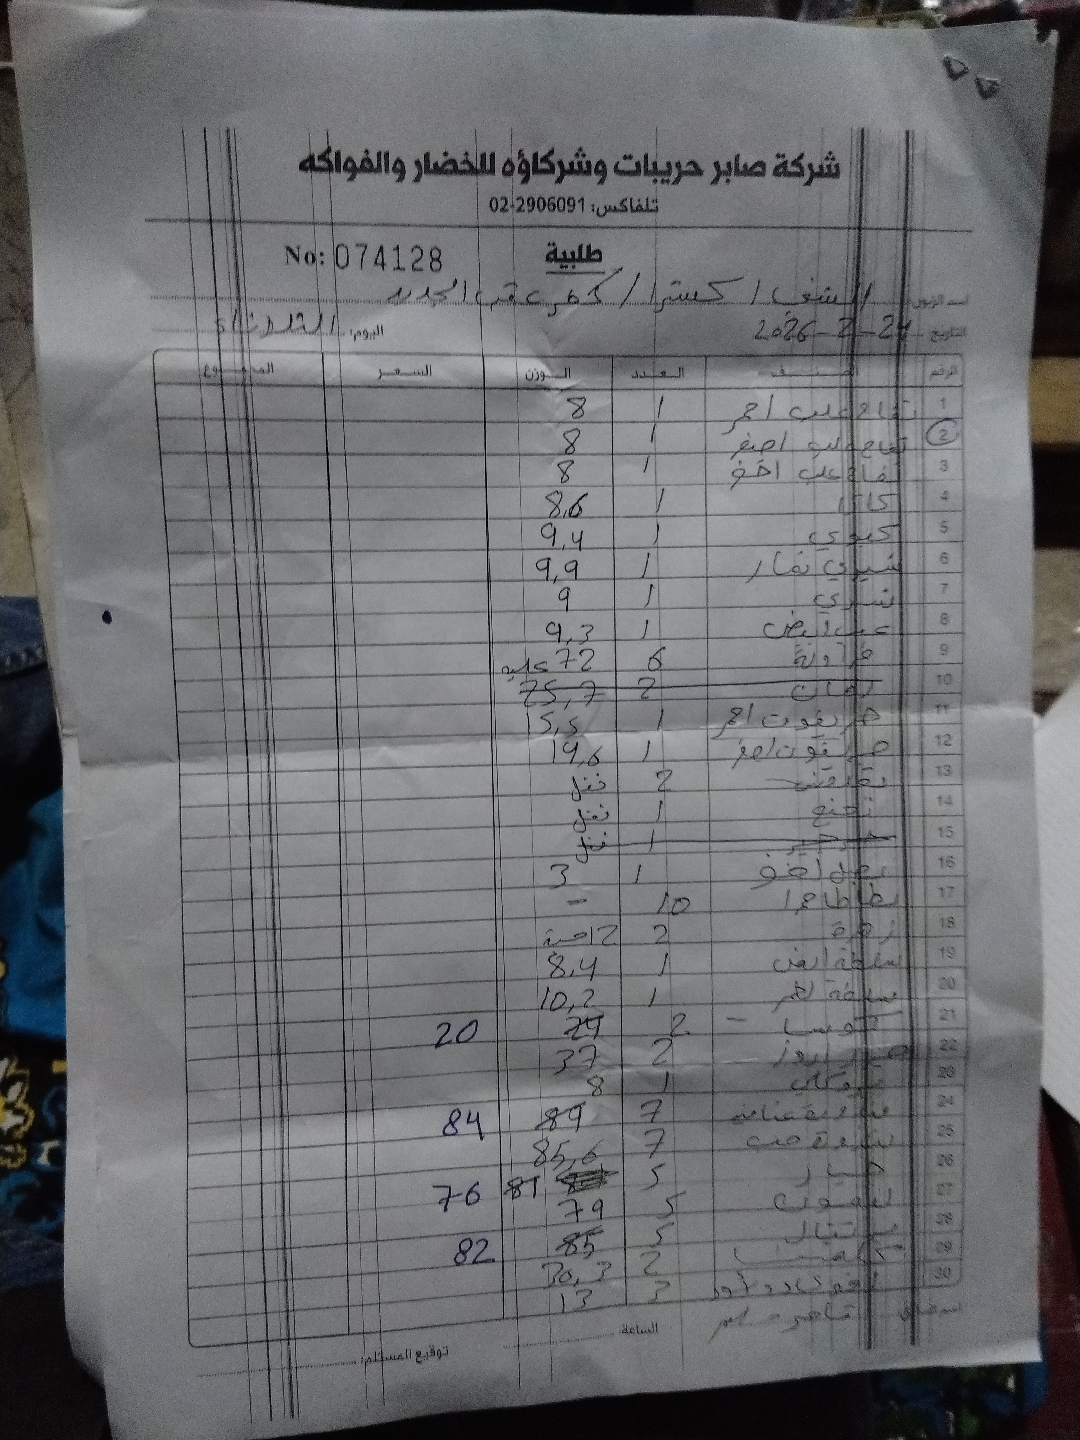 شركة صابر حريبات وشركاؤه للخضار والفواكه
تلفاكس: 02-2906091
طلبية No: 074128
اسم الزبون: الشفا اكسترا / كفر عقب الجديد
التاريخ: 24-2-2026 اليوم: الثلاثاء
الرقم الصنف العدد الوزن السعر المجموع
1 تفاح علب احمر 1 8
2 تفاح علب اصفر 1 8
3 تفاح علب اخضر 1 8
4 كاكا 1 8,6
5 كيوي 1 9,4
6 شيري 1 9,9
7 شيري 1 9
8 عنب ابيض 1 9,3
9 فراولة 6 72 علبه
10 رمان 2 25,7
11 جريفوت احمر 1 15,5
12 جريفوت اصفر 1 19,6
13 2
14 نعنع 1
15 1
16 بصل اخضر 1 3
17 بطاطا 10 -
18 زهرة 2 2
19 ملفوف ابيض 1 8,4
20 ملفوف احمر 1 10,2
21 كوسا - 2 24 20
22 2 37
23 بروكلي 1 8
24 بندورة 7 89 84
25 بندورة حب 7 85,6
26 خيار 5 81 76
27 ليمون 5 79
28 برتقال 5 85 82
29 كلمنتينا 2 30,3
30 افوكادو 3 13
الساعة:
توقيع المستلم: